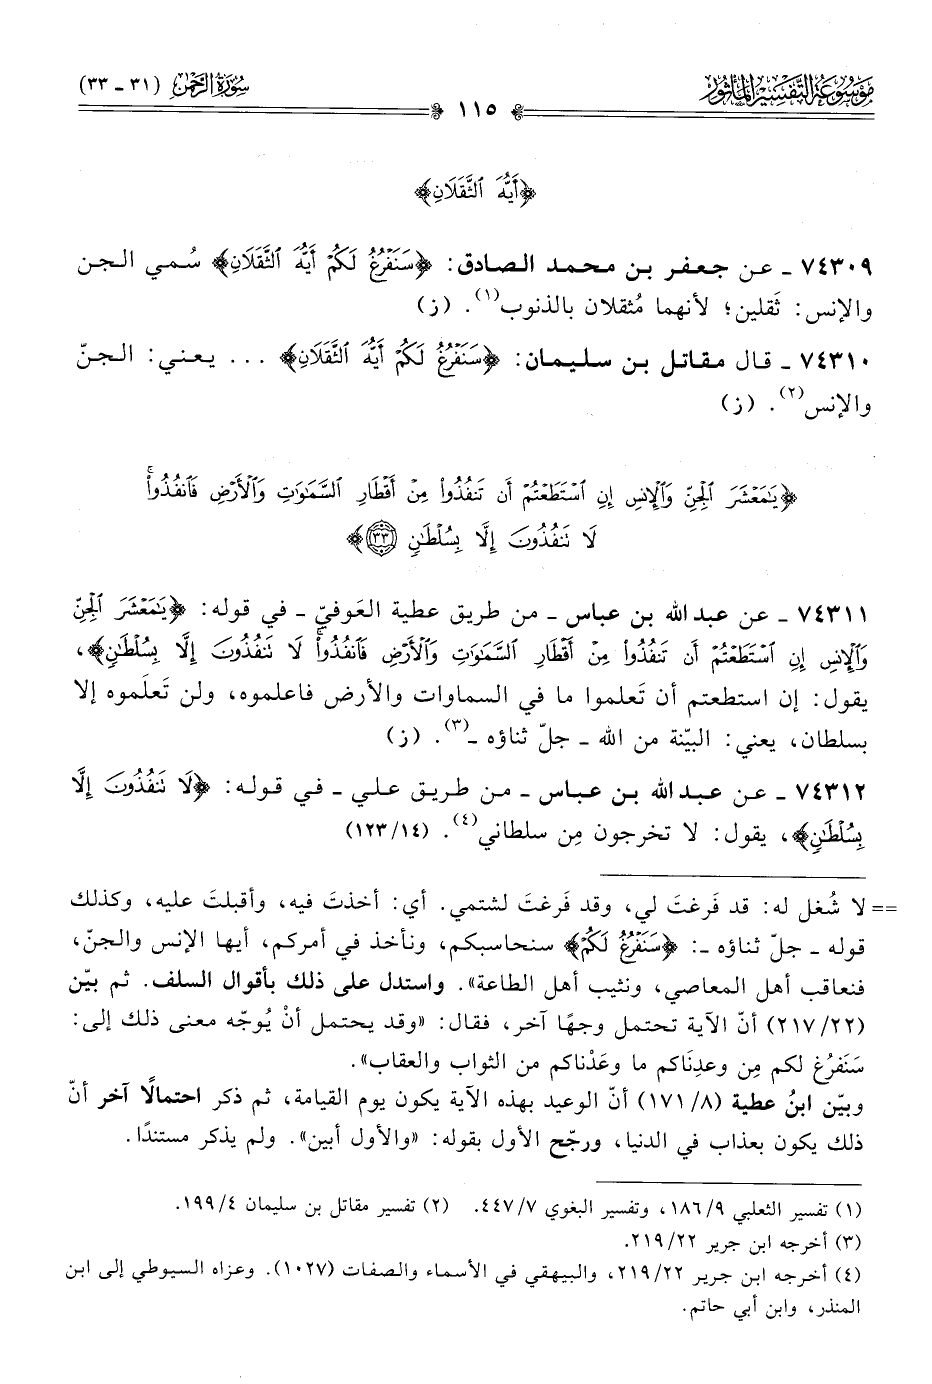 موسوعة التفسير المأثور
١١٥
سورة الرحمن (٣١ ـ ٣٣)
﴿أَيُّهَ ٱلثَّقَلَانِ﴾
٧٤٣٠٩ ـ عن جعفر بن محمد الصادق: ﴿سَنَفْرُغُ لَكُمْ أَيُّهَ ٱلثَّقَلَانِ﴾ سُمي الجن
والإنس: ثَقلين؛ لأنهما مُثقلان بالذنوب(١). (ز)
٧٤٣١٠ ـ قال مقاتل بن سليمان: ﴿سَنَفْرُغُ لَكُمْ أَيُّهَ ٱلثَّقَلَانِ﴾ ... يعني: الجنّ
والإنس(٢). (ز)
﴿يَٰمَعْشَرَ ٱلْجِنِّ وَٱلْإِنسِ إِنِ ٱسْتَطَعْتُمْ أَن تَنفُذُوا۟ مِنْ أَقْطَارِ ٱلسَّمَٰوَٰتِ وَٱلْأَرْضِ فَٱنفُذُوا۟ۚ
لَا تَنفُذُونَ إِلَّا بِسُلْطَٰنٍ ٣٣﴾
٧٤٣١١ ـ عن عبد الله بن عباس ـ من طريق عطية العَوفيّ ـ في قوله: ﴿يَٰمَعْشَرَ ٱلْجِنِّ
وَٱلْإِنسِ إِنِ ٱسْتَطَعْتُمْ أَن تَنفُذُوا۟ مِنْ أَقْطَارِ ٱلسَّمَٰوَٰتِ وَٱلْأَرْضِ فَٱنفُذُوا۟ۚ لَا تَنفُذُونَ إِلَّا بِسُلْطَٰنٍ﴾،
يقول: إن استطعتم أن تَعلموا ما في السماوات والأرض فاعلموه، ولن تَعلَموه إلا
بسلطان، يعني: البيّنة من الله ـ جلّ ثناؤه ـ(٣). (ز)
٧٤٣١٢ ـ عن عبد الله بن عباس ـ من طريق علي ـ في قوله: ﴿لَا تَنفُذُونَ إِلَّا
بِسُلْطَٰنٍ﴾، يقول: لا تخرجون مِن سلطاني(٤). (١٤/ ١٢٣)
== لا شُغل له: قد فَرغتَ لي، وقد فَرغتَ لشتمي. أي: أخذتَ فيه، وأقبلتَ عليه، وكذلك
قوله ـ جلّ ثناؤه ـ: ﴿سَنَفْرُغُ لَكُمْ﴾ سنحاسبكم، ونأخذ في أمركم، أيها الإنس والجنّ،
فنعاقب أهل المعاصي، ونثيب أهل الطاعة». واستدل على ذلك بأقوال السلف. ثم بيّن
(٢٢/ ٢١٧) أنّ الآية تحتمل وجهًا آخر، فقال: «وقد يحتمل أنْ يُوجّه معنى ذلك إلى:
سَنَفرُغ لكم مِن وعدِنَاكم ما وعَدْناكم من الثواب والعقاب».
وبيّن ابنُ عطية (٨/ ١٧١) أنّ الوعيد بهذه الآية يكون يوم القيامة، ثم ذكر احتمالًا آخر أنّ
ذلك يكون بعذاب في الدنيا، ورجّح الأول بقوله: «والأول أبين». ولم يذكر مستندًا.
(١) تفسير الثعلبي ٩/ ١٨٦، وتفسير البغوي ٧/ ٤٤٧. (٢) تفسير مقاتل بن سليمان ٤/ ١٩٩.
(٣) أخرجه ابن جرير ٢٢/ ٢١٩.
(٤) أخرجه ابن جرير ٢٢/ ٢١٩، والبيهقي في الأسماء والصفات (١٠٢٧). وعزاه السيوطي إلى ابن
المنذر، وابن أبي حاتم.